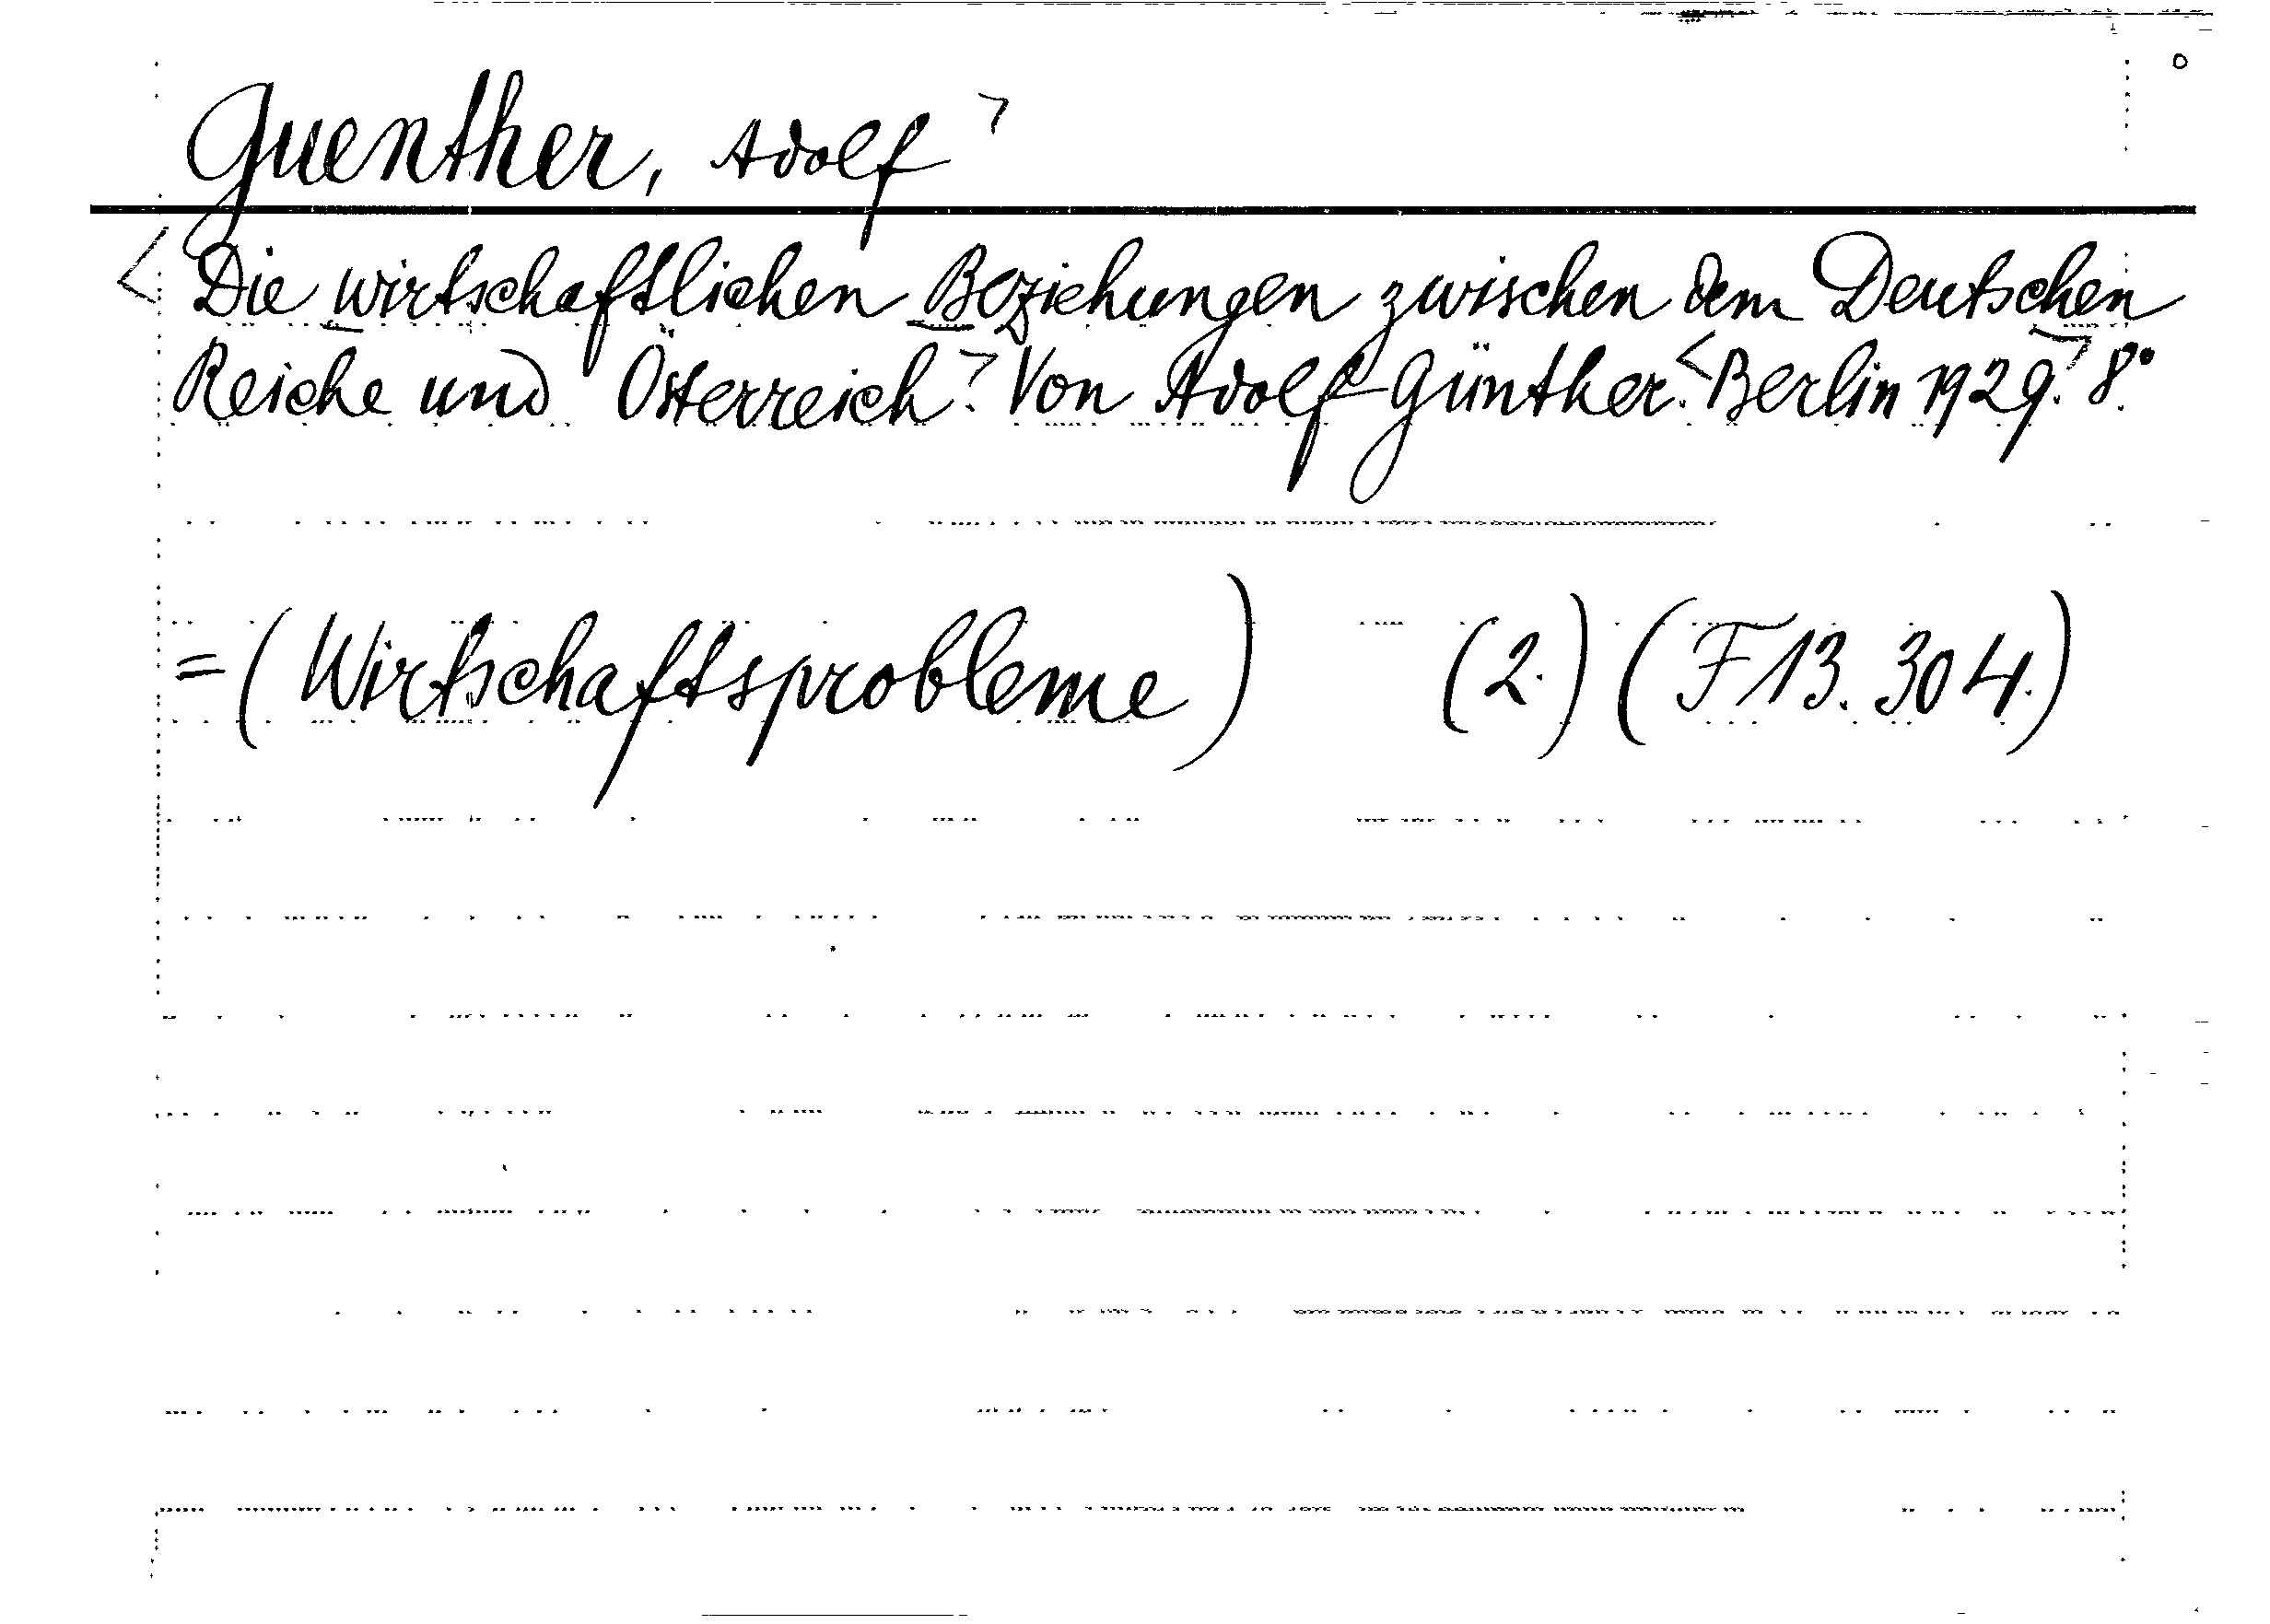 Guenther, Adolf ⌝
< Die wirtschaftlichen Beziehungen zwischen dem Deutschen
Reiche und Österreich.⌝ Von Adolf Günther. <Berlin 1929.⌝ 8°.
= (Wirtschaftsprobleme) (2.) (F 13. 304.)